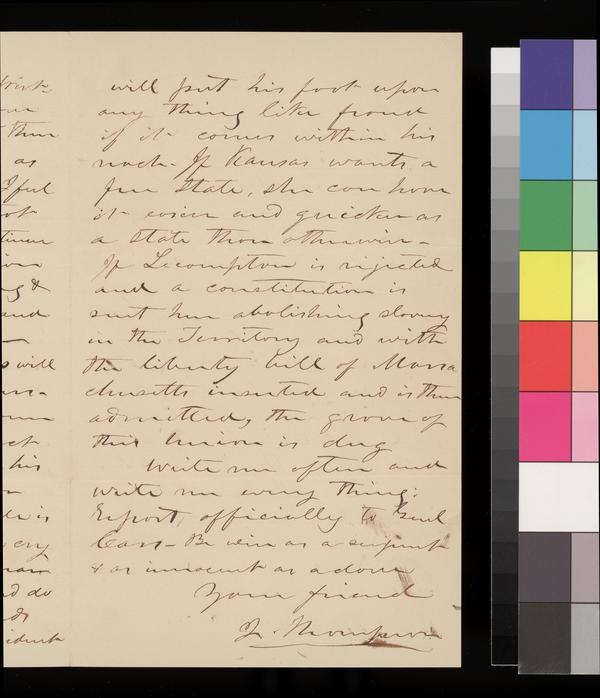 will put his foot upon
any thing like fraud
if it comes within his
reach. If Kansas wants a
free State, she can have
it easier and quicker as
a State than otherwise -
If Lecompton is rejected
and a constitution is
sent here abolishing slavery
in the Territory and with
the liberty bill of Massa
chusetts inserted and is then
admitted, the grave of
this Union is dug
Write me often and
write me every thing;
Report, officially to Genl
Cass - Be wise as a serpent
& as innocent as a dove
Your friend
J. Thompson
then
as
ful
&
and
will
his
is
cry
do